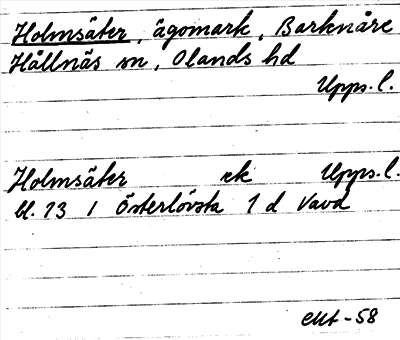 Holmsäter, ägomark, Barknåre
Hållnäs sn, Olands hd
Upps. l.
Holmsäter ek Upps. l.
bl. 73 I Österlövsta 1 d Vavd
-58